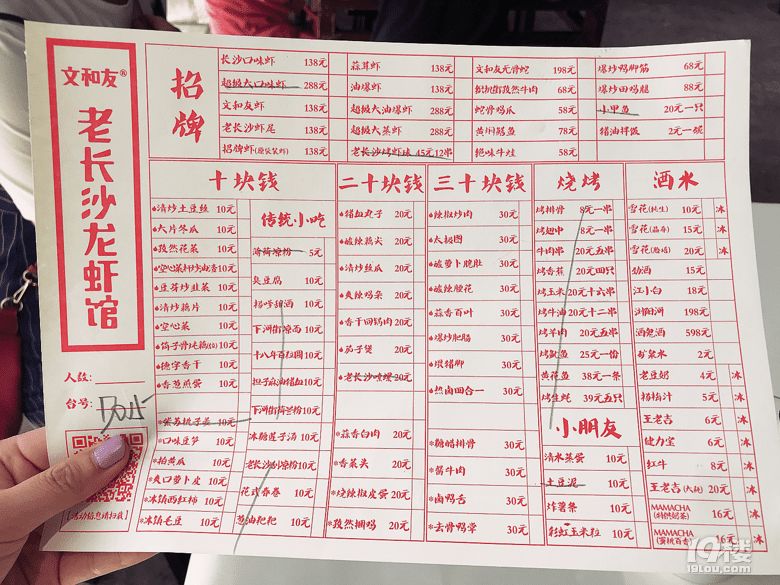 文和友®
老长沙龙虾馆
人数:
台号: D015
【活动信息请扫我】
招牌
长沙口味虾 138元
超级大口味虾 288元
文和友虾 138元
老长沙虾尾 138元
招牌虾(原袋装虾) 138元
蒜茸虾 138元
油爆虾 138元
超级大油爆虾 288元
超级大蒸虾 288元
老长沙烤虾球 45元12串
文和友无骨蛇 198元
孜然牛肉 68元
蛇骨鸡爪 58元
黄州鳝鱼 78元
绝味牛蛙 58元
爆炒鸭脚筋 68元
爆炒田鸡腿 88元
小甲鱼 20元一只
猪油拌饭 2元一碗
十块钱
清炒土豆丝 10元
大片冬瓜 10元
孜然花菜 10元
空心菜梗炒豌香 10元
豆芽炒韭菜 10元
清炒藕片 10元
空心菜 10元
筒子骨炖藕 10元
德字香干 10元
香葱煎蛋 10元
紫苏桃子姜 10元
口味豆笋 10元
拍黄瓜 10元
爽口萝卜皮 10元
冰镇西红柿 10元
冰镇毛豆 10元
传统小吃
荷荷凉粉 5元
臭豆腐 10元
捞虾甜酒 10元
下河街凉面 10元
十八年百粒圆 10元
担子麻油猪血 10元
下河街荷兰粉 10元
冰糖莲子汤 10元
老长沙刮凉粉 10元
花式春卷 10元
葱油粑粑 10元
二十块钱
猪血丸子 20元
酸辣藕尖 20元
清炒丝瓜 20元
爽辣鸡杂 20元
香干回锅肉 20元
茄子煲 20元
老长沙喷嗖 20元
蒜香白肉 20元
香菜头 20元
烧辣椒皮蛋 20元
孜然捆鸡 20元
三十块钱
辣椒炒肉 30元
太极图 30元
酸萝卜腰肚 30元
酸辣腰花 30元
蒜香百叶 30元
爆炒肥肠 30元
坝猪脚 30元
热卤四合一 30元
糖醋排骨 30元
酱牛肉 30元
卤鸭舌 30元
去骨鸭掌 30元
烧烤
烤排骨 8元一串
烤翅中 8元一串
牛肉串 20元五串
烤香蕉 20元四只
烤玉米 20元十六串
烤牛油 20元十二串
烤羊肉 20元五串
烤鱿鱼 25元一份
黄花鱼 38元一条
烤生蚝 39元五只
小朋友
清水蒸蛋 10元
土豆泥 10元
炸薯条 10元
彩虹玉米粒 10元
酒水
雪花(纯生) 10元 冰
雪花(晶尊) 15元 冰
雪花(脸谱) 20元 冰
劲酒 15元
江小白 18元
浏阳河 198元
酒鬼酒 598元
矿泉水 2元
老豆奶 4元 冰
杨梅汁 5元 冰
王老吉 6元 冰
健力宝 6元 冰
红牛 8元 冰
王老吉(大瓶) 20元 冰
MAMACHA(特供奶茶) 16元 冰
MAMACHA(蜜桃百香) 16元 冰
19楼
19lou.com